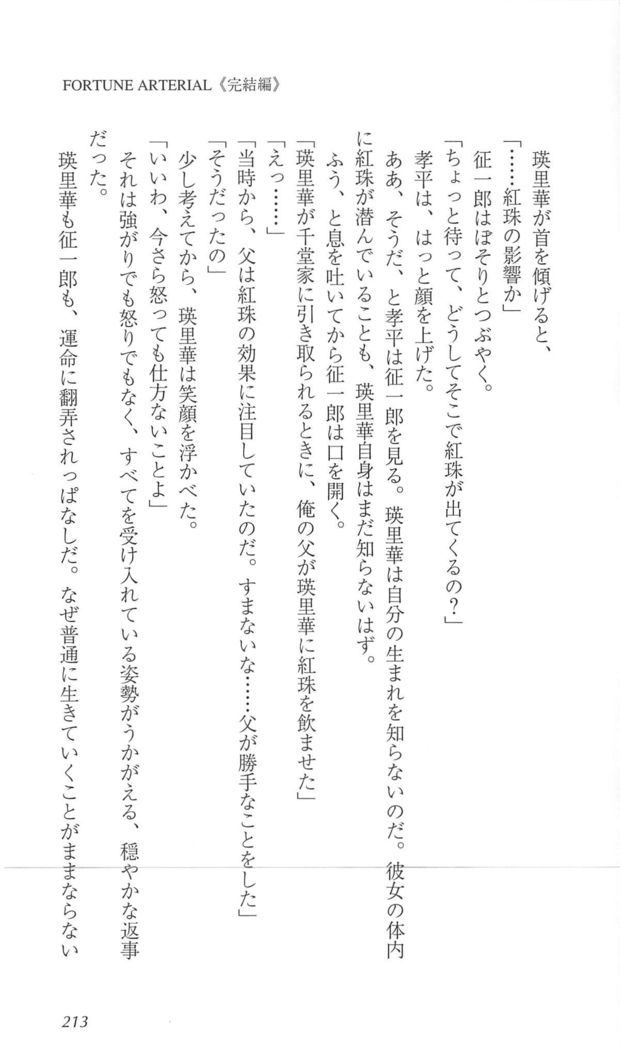 FORTUNE ARTERIAL《完結編》
瑛里華が首を傾げると、
「……紅珠の影響か」
征一郎はぼそりとつぶやく。
「ちょっと待って、どうしてそこで紅珠が出てくるの？」
孝平は、はっと顔を上げた。
ああ、そうだ、と孝平は征一郎を見る。瑛里華は自分の生まれを知らないのだ。彼女の体内
に紅珠が潜んでいることも、瑛里華自身はまだ知らないはず。
ふう、と息を吐いてから征一郎は口を開く。
「瑛里華が千堂家に引き取られるときに、俺の父が瑛里華に紅珠を飲ませた」
「えっ……」
「当時から、父は紅珠の効果に注目していたのだ。すまないな……父が勝手なことをした」
「そうだったの」
少し考えてから、瑛里華は笑顔を浮かべた。
「いいわ、今さら怒っても仕方ないことよ」
それは強がりでも怒りでもなく、すべてを受け入れている姿勢がうかがえる、穏やかな返事
だった。
瑛里華も征一郎も、運命に翻弄されっぱなしだ。なぜ普通に生きていくことがままならない
213